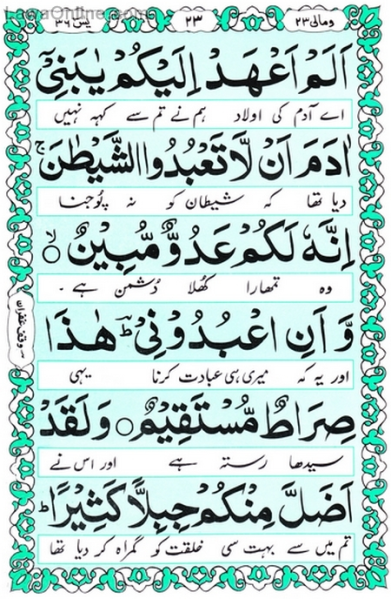 یٰسٓ ٣٦
٢٣
ومالی ٢٣
اَلَمۡ اَعۡهَدۡ اِلَیۡكُمۡ یٰبَنِیۡۤ
اے آدم کی اولاد ہم نے تم سے کہہ نہیں
اٰدَمَ اَنۡ لَّا تَعۡبُدُوا الشَّیۡطٰنَ ۚ
دیا تھا کہ شیطان کو نہ پُوجنا
اِنَّهٗ لَكُمۡ عَدُوٌّ مُّبِیۡنٌ ۙ○
وہ تمھارا کُھلا دُشمن ہے ۔
وَّ اَنِ اعۡبُدُوۡنِیۡ ؕ هٰذَا
اور یہ کہ میری ہی عبادت کرنا یہی
صِرَاطٌ مُّسۡتَقِیۡمٌ ○ وَلَقَدۡ
سیدھا رستہ ہے اور اس نے
اَضَلَّ مِنۡكُمۡ جِبِلًّا كَثِیۡرًا ؕ
تم میں سے بہت سی خلقت کو گمراہ کر دیا تھا